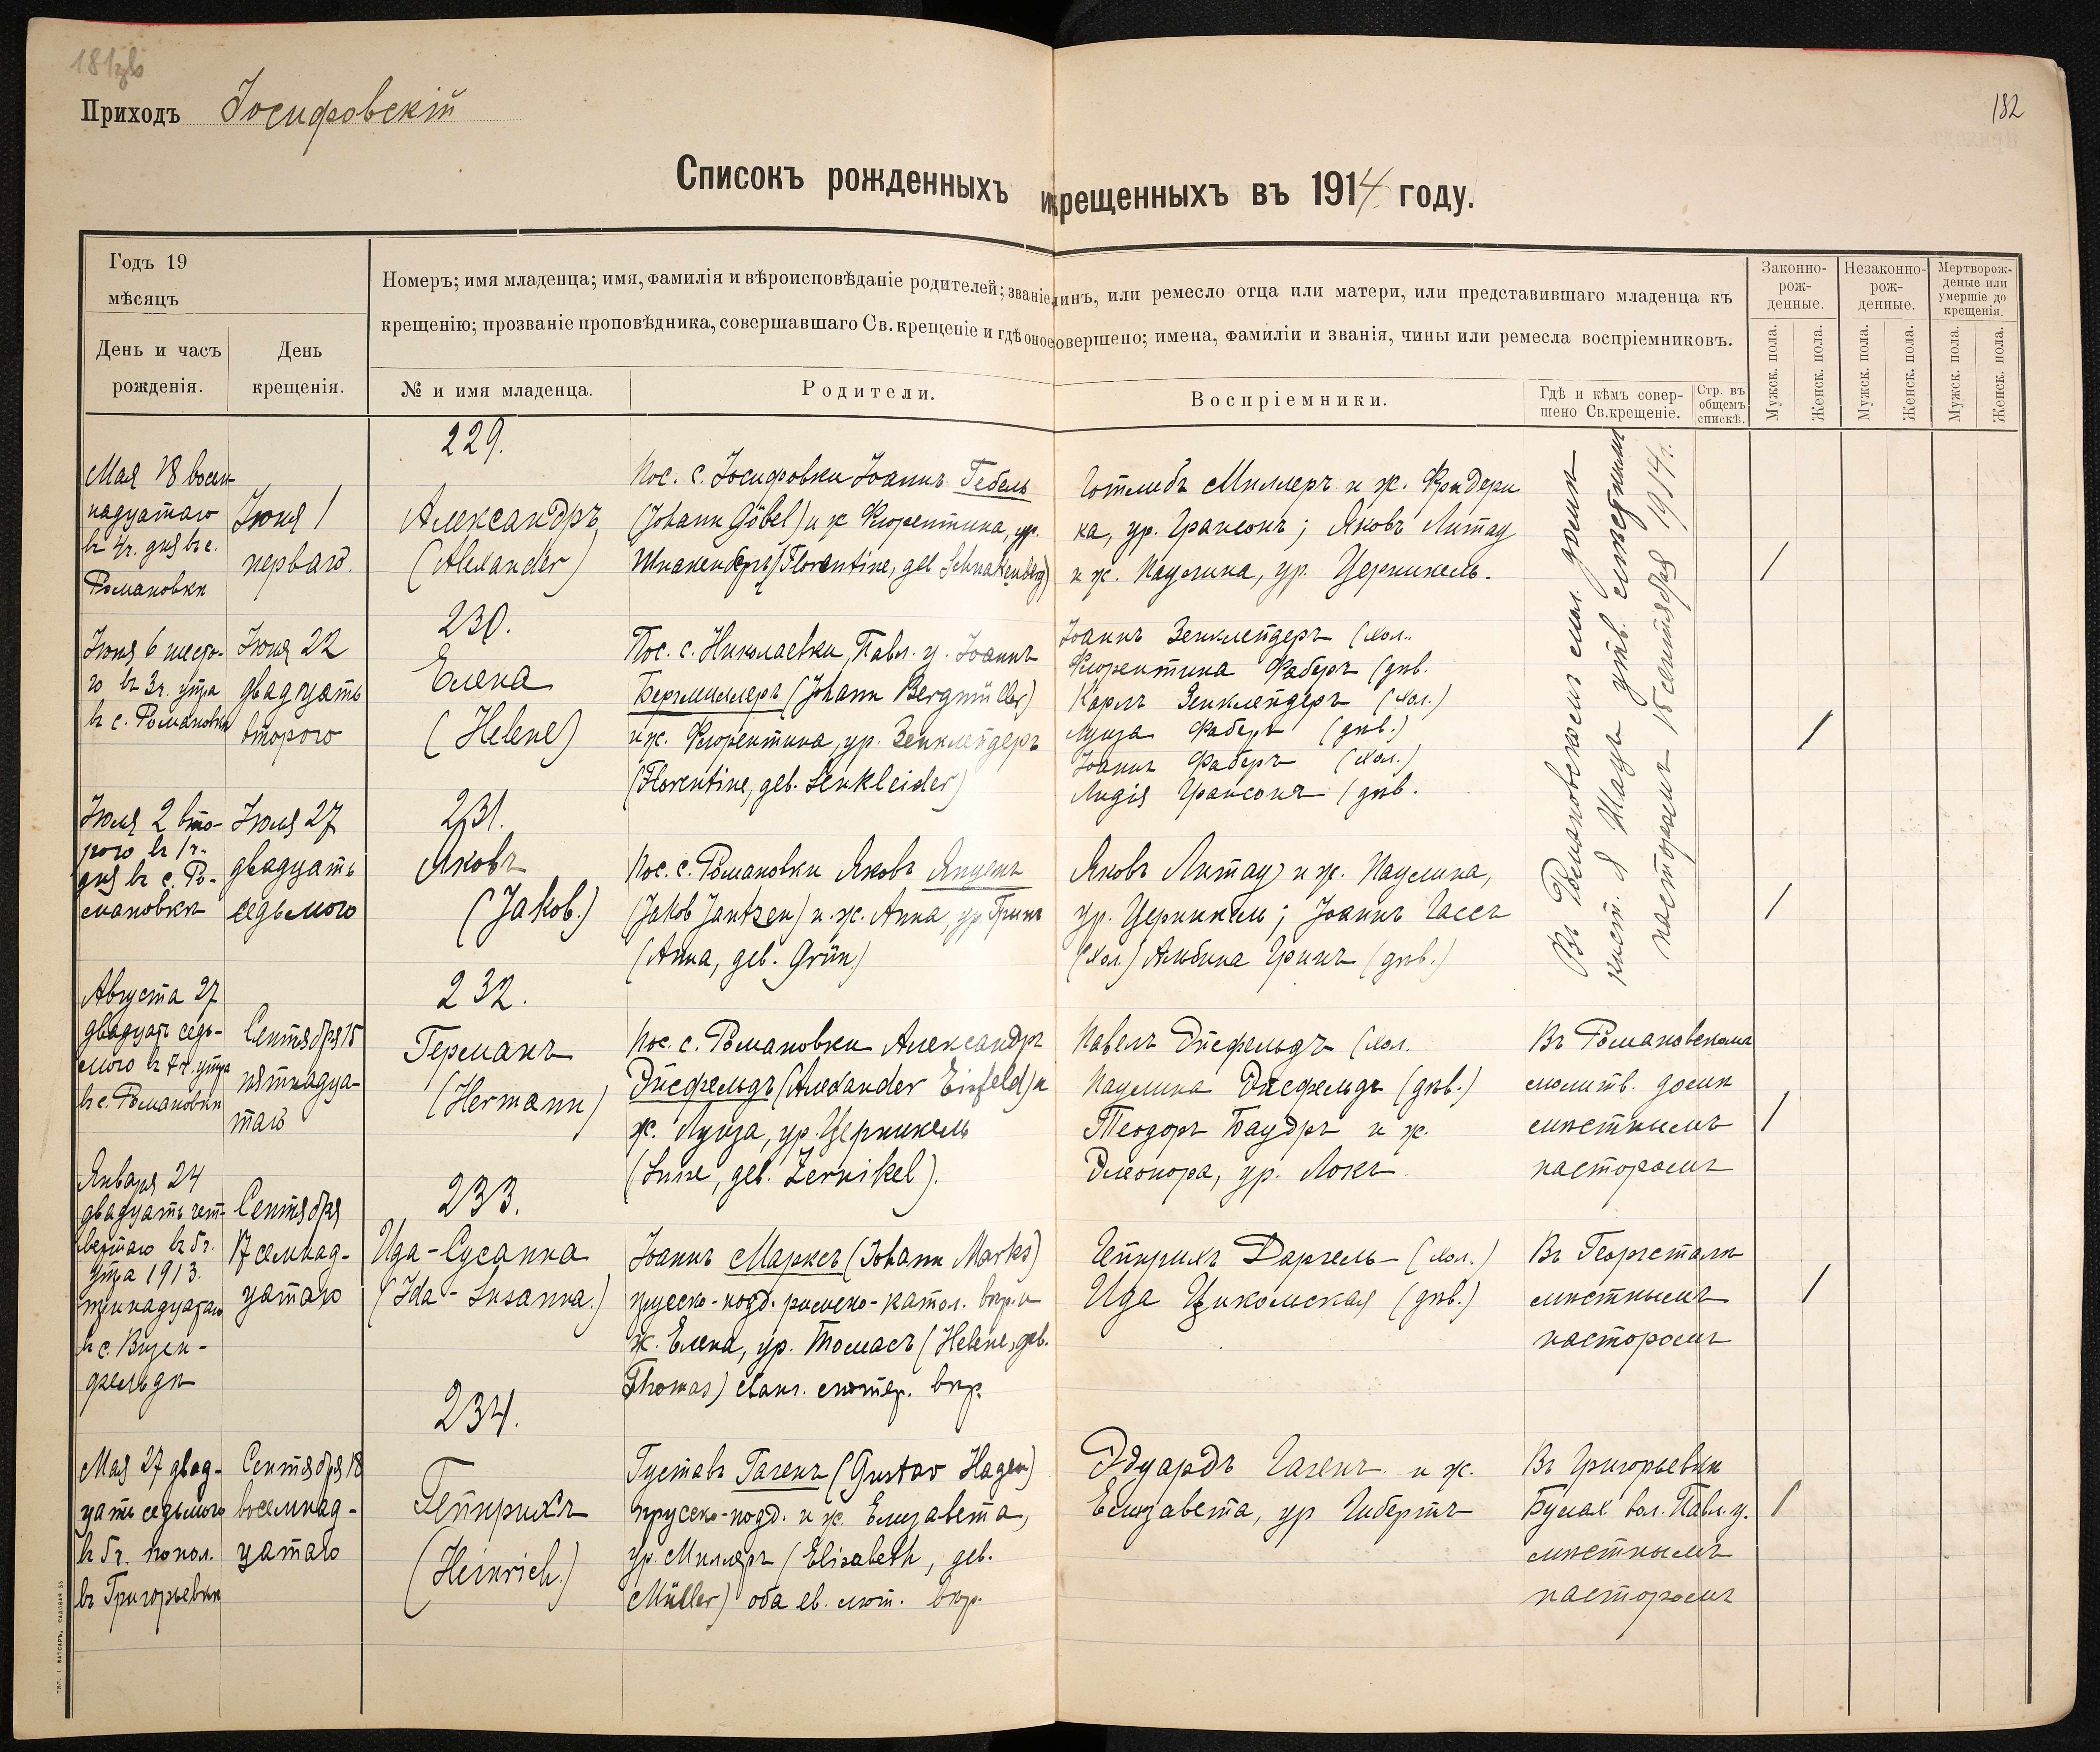 181об
182
Приходъ Іосифовскій
Списокъ рожденныхъ и крещенныхъ въ 1914 году.
Годъ 19
мѣсяцъ
День и часъ
рожденія.
День
крещенія.
Номеръ; имя младенца; имя, фамилія и вѣроисповѣданіе родителей; званіе, чинъ, или ремесло отца или матери, или представившаго младенца къ
крещенію; прозваніе проповѣдника, совершавшаго Св. крещеніе и гдѣ оное совершено; имена, фамиліи и званія, чины или ремесла воспріемниковъ.
№ и имя младенца.
Родители.
Воспріемники.
Гдѣ и кѣмъ совер-
шено Св. крещеніе.
Стр. въ
общемъ
спискѣ.
Законно-
рож-
денные.
Незаконно-
рож-
денные.
Мертворож-
деные или
умершіе до
крещенія.
Мужск. пола.
Женск. пола.
Мужск. пола.
Женск. пола.
Мужск. пола.
Женск. пола.
Мая 18 восем-
надцатаго
въ 4ч. дня въ с.
Романовки
Іюня 1
перваго.
229.
Александръ
(Alexander)
Пос. с. Іосифовки Іоаннъ Гебель
(Johann Göbel) и ж Флорентина, ур.
Шнакенбергъ (Florentine, geb Schnakenberg)
Готлибъ Миллеръ и ж. Фридери
ка, ур. Франсонъ; Яковъ Литау
и ж. Паулина, ур. Церникель.
/
Въ Романовскомъ мол. домѣ
кист. А Шацъ утв. мѣстнымъ
пасторомъ 15 сентября 1914г.
Іюня 6 шесто-
го въ 3ч. утра
въ с. Романовки
Іюня 22
двадцать
второго
230.
Елена
(Helene)
Пос. с. Николаевки, Павл. у. Іоаннъ
Бергмиллеръ (Johann Bergmüller)
и ж. Флорентина, ур. Зенклейдеръ
(Florentine, geb. Senkleider)
Іоаннъ Зенклейдеръ (хол.
Флорентина Фаберъ (дѣв.
Карлъ Зенклейдеръ (хол.)
Луиза Фаберъ (дѣв.)
Іоаннъ Фаберъ (хол.)
Лидія Франсонъ (дѣв.
/
Іюля 2 вто-
рого въ 1ч.
дня въ с. Ро-
мановки
Іюля 27
двадцать
седьмого
231.
Яковъ
(Jakob.)
Пос. с. Романовки Яковъ Янценъ
(Jakob Jantzen) и ж. Анна, ур. Гринъ
(Anna, geb. Grün)
Яковъ Литау и ж. Паулина,
ур. Церникель; Іоаннъ Гассъ
(хол.) Альбина Гринъ (дѣв.)
/
Августа 27
двадцать седь-
мого въ 7ч. утра
въ с. Романовки
Сентября 15
пятнадца-
таго
232.
Германъ
(Hermann)
Пос. с. Романовки Александръ
Эйсфельдъ (Alexander Eisfeld) и
ж. Луиза, ур. Церникель
(Luise, geb. Zernikel).
Павелъ Эйсфельдъ (хол.
Паулина Эйсфельдъ (дѣв.)
Теодоръ Баудръ и ж.
Элеонора, ур. Локъ.
Въ Романовскомъ
молитв. домѣ
мѣстнымъ
пасторомъ
/
Января 24
двадцать чет-
вертаго въ 5ч.
утра 1913.
тринадцатаго
въ с. Визен-
фельдѣ
Сентября
17 семнад-
цатаго
233.
Ида-Сусанна
(Ida-Susanna.)
Іоаннъ Марксъ (Johann Marks)
прусско-подд. римско-катол. вѣр. и
ж. Елена, ур. Томасъ (Helene, geb.
Thomas) еванг. лютер. вѣр.
Гейнрихъ Даргель (хол.)
Ида (дѣв.)
Въ Георгсталѣ
мѣстнымъ
пасторомъ
/
Мая 27 двад-
цать седьмого
въ 5ч. попол.
въ Григорьевкѣ
Сентября 18
восемнад-
цатаго
234.
Гейнрихъ
(Heinrich.)
Густавъ Гагенъ (Gustav Hagen)
прусско-подд. и ж. Елизавета,
ур. Миллеръ (Elisabeth, geb.
Müller) оба ев. лют. вѣр.
Эдуардъ Гагенъ и ж.
Елизавета, ур Гибертъ
Въ Григорьевкѣ
Булах. вол. Павл. у.
мѣстнымъ
пасторомъ
/